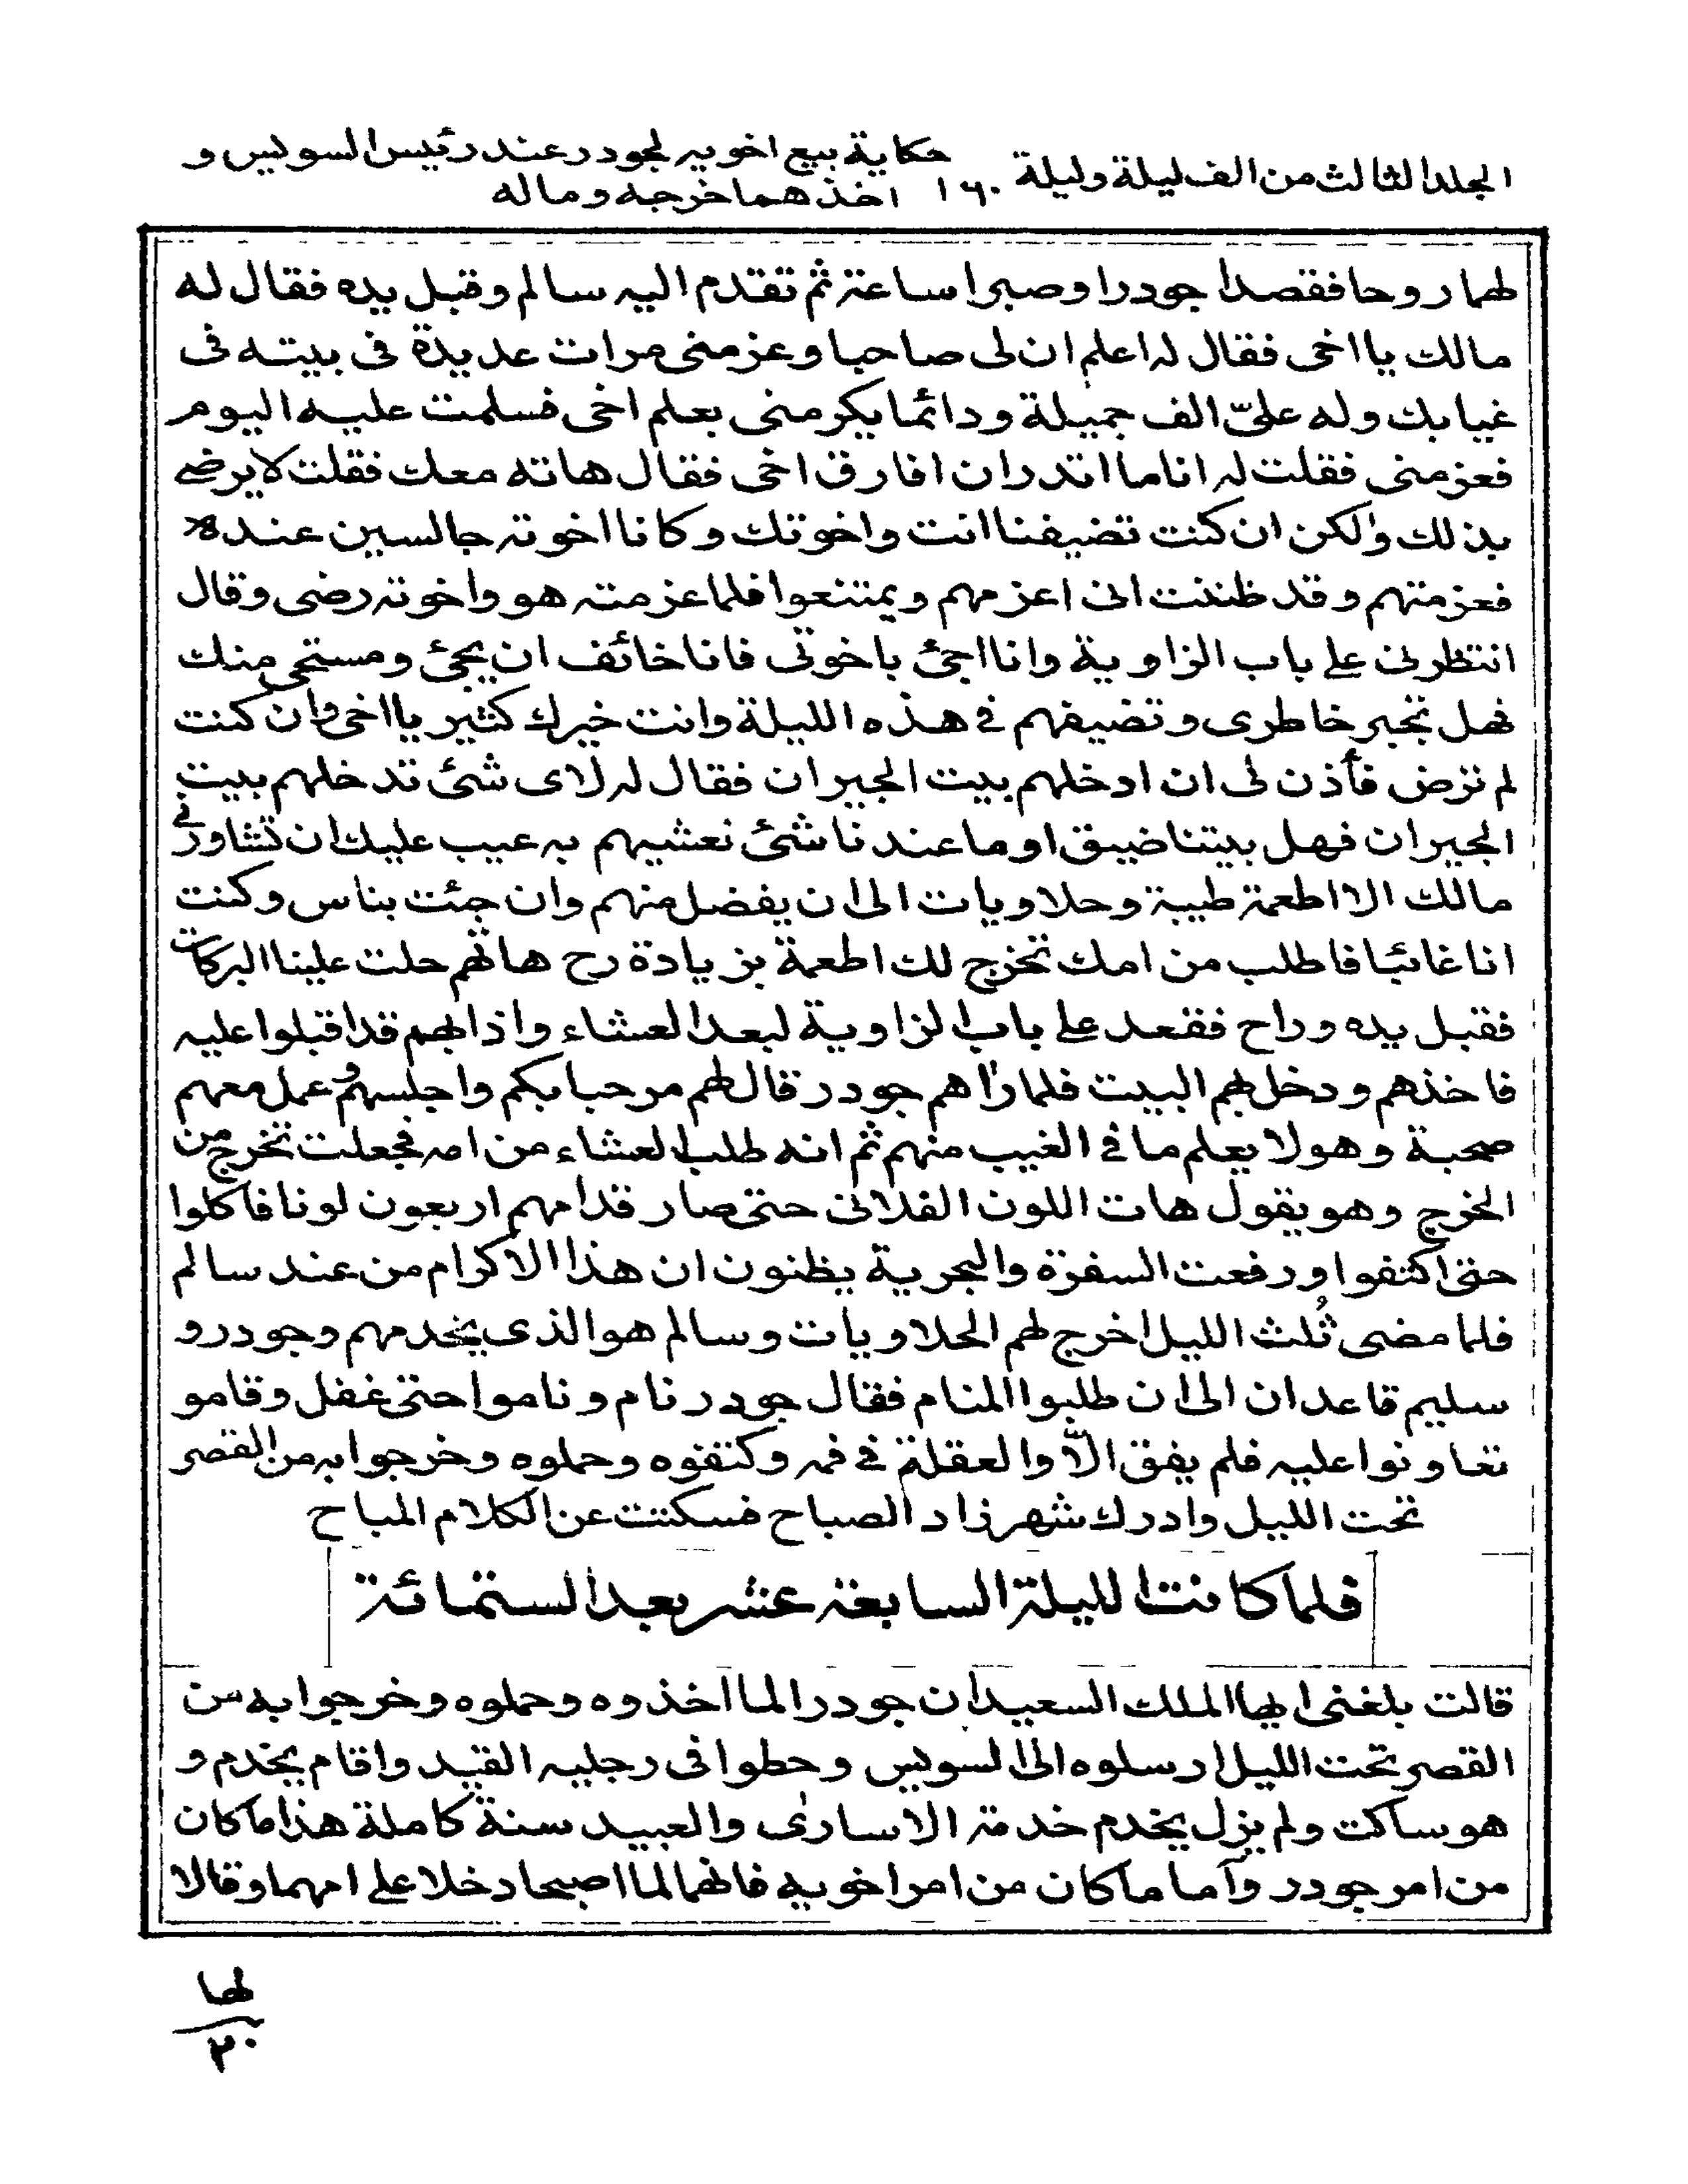 الجلد الثالث من الف ليلة وليلة ١٦٠ حكاية بيع اخويه لجودر عند رئيس السويس و
اخذهما خرجه وماله
لهما روحا فقصدا جودرا وصبرا ساعة ثم تقدم اليه سالم وقبل يده فقال له
مالك يا اخى فقال له اعلم ان لى صاحبا وعزمنى مرات عديدة فى بيته فى
غيابك وله علىّ الف جميلة ودائما يكرمنى بعلم اخى فسلمت عليه اليوم
فعزمنى فقلت له انا ما اقدر ان افارق اخى فقال هاته معك فقلت لا يرضے
بذلك ولكن ان كنت تضيفنا انت واخوتك وكانا اخوته جالسين عنده
فعزمتهم وقد ظننت انى اعزمهم ويمتنعوا فلما عزمته هو واخوته رضى وقال
انتظرنى على باب الزاوية وانا اجئ باخوتى فانا خائف ان يجئ ومستحى منك
فهل تجبر خاطرى وتضيفهم فى هذه الليلة وانت خيرك كثير يا اخى وان كنت
لم ترض فأذن لى ان ادخلهم بيت الجيران فقال له لاى شئ تدخلهم بيت
الجيران فهل بيتنا ضيق او ما عندنا شئ نعشيهم به عيب عليك ان تشاورنى
مالك الا اطعمة طيبة وحلاويات الى ان يفضل منهم وان جئت بناس وكنت
انا غائبا فاطلب من امك تخرج لك اطعمة بزيادة رح هاتهم حلت علينا البركات
فقبل يده وراح فقعد على باب الزاوية لبعد العشاء واذا بهم قد اقبلوا عليه
فاخذهم ودخل بهم البيت فلما رآهم جودر قال لهم مرحبا بكم واجلسهم وعمل معهم
صحبة وهو لا يعلم ما فى الغيب منهم ثم انه طلب العشاء من امه فجعلت تخرج من
الخرج وهو يقول هات اللون الفلانى حتى صار قدامهم اربعون لونا فاكلوا
حتى اكتفوا ورفعت السفرة والبحرية يظنون ان هذا الاكرام من عند سالم
فلما مضى ثُلث الليل اخرج لهم الحلاويات وسالم هو الذى يخدمهم وجودر و
سليم قاعدان الى ان طلبوا المنام فقال جودر نام وناموا حتى غفل وقامو
تعاونوا عليه فلم يفق الّا والعقلة فى فمه وكتفوه وحملوه وخرجوا به من القصر
تحت الليل وادرك شهرزاد الصباح فسكتت عن الكلام المباح
فلما كانت الليلة السابعة عشر بعد الستمائة
قالت بلغنى ايها الملك السعيد ان جودرا لما اخذوه وحملوه وخرجوا به من
القصر تحت الليل ارسلوه الى السويس وحطوا فى رجليه القيد واقام يخدم و
هو ساكت ولم يزل يخدم خدمة الاسارى والعبيد سنة كاملة هذا ما كان
من امر جودر وأما ما كان من امر اخويه فانهما لما اصبحا دخلا على امهما وقالا
لها
٢٠